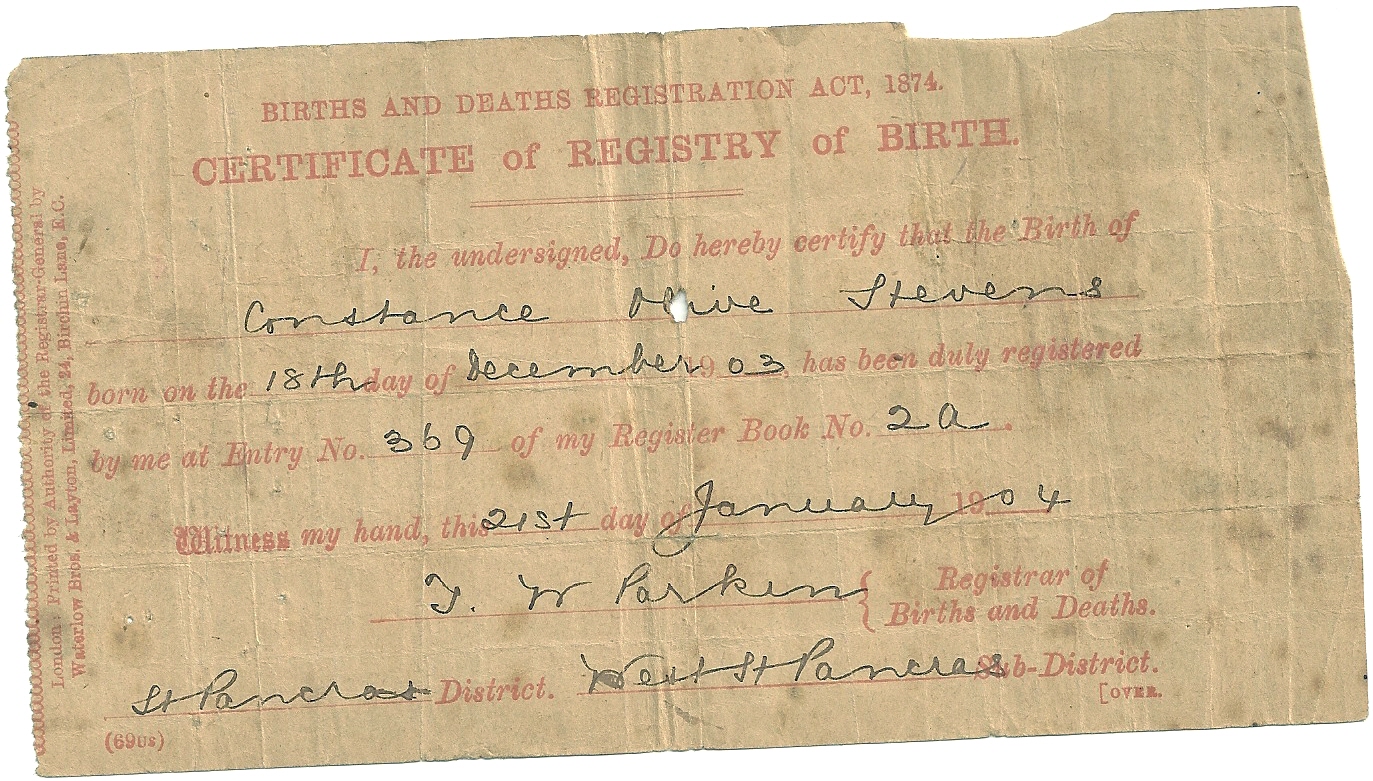 BIRTHS AND DEATHS REGISTRATION ACT, 1874.
CERTIFICATE of REGISTRY of BIRTH.
I, the undersigned, Do hereby certify that the Birth of
Constance Olive Stevens
born on the 18th day of December 1903, has been duly registered
by me at Entry No. 369 of my Register Book No. 2a.
Witness my hand, this 21st day of January 1904
W Parken { Registrar of
Births and Deaths.
St Pancras District. West St Pancras Sub-District.
[OVER.
London: Printed by Authority of the Registrar-General by
Waterlow Bros. & Layton, Limited, 24, Birchin Lane, E.C.